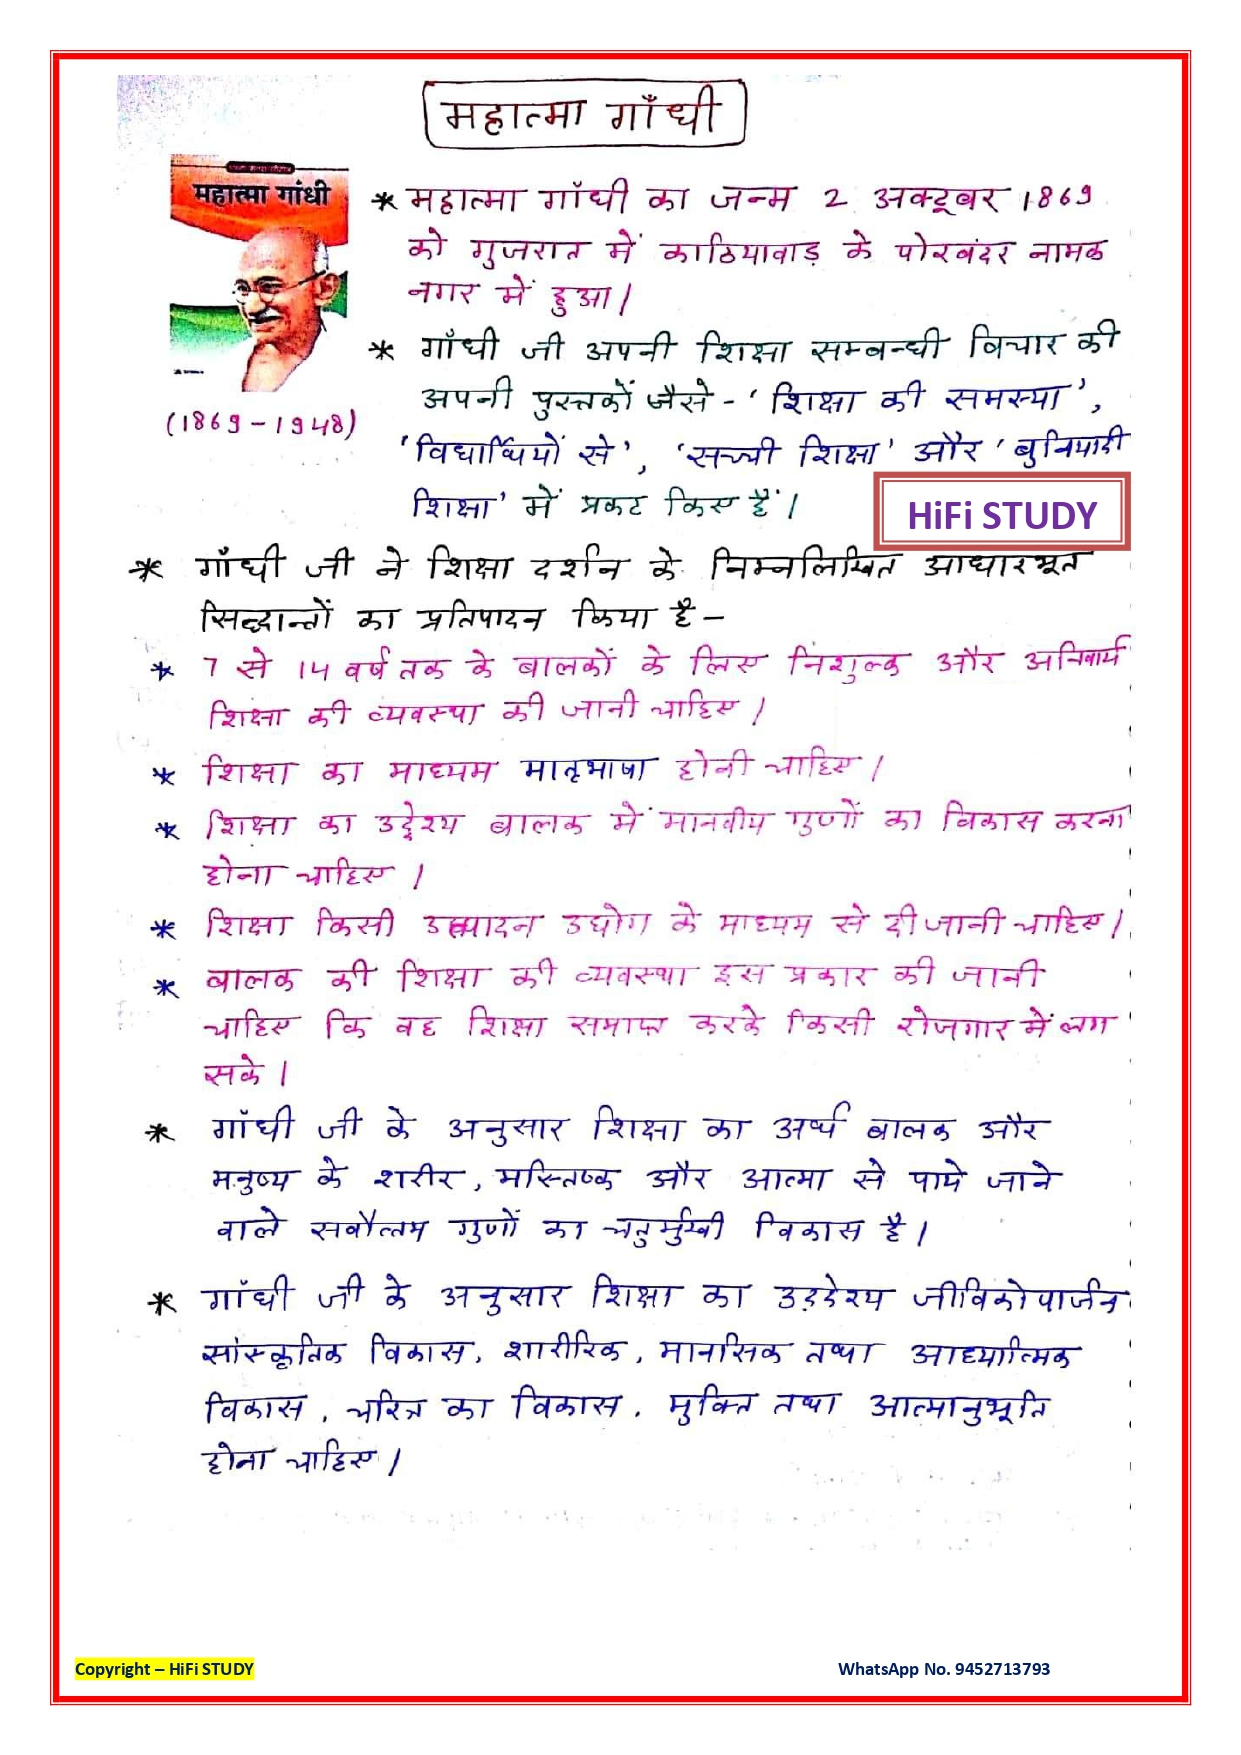 महात्मा गाँधी
महात्मा गांधी
(1869-1948)
* महात्मा गाँधी का जन्म 2 अक्टूबर 1869
को गुजरात में काठियावाड़ के पोरबंदर नामक
नगर में हुआ।
* गाँधी जी अपनी शिक्षा सम्बन्धी विचार की
अपनी पुस्तकों जैसे - 'शिक्षा की समस्या',
'विद्यार्थियों से', 'सच्ची शिक्षा' और 'बुनियादी
शिक्षा' में प्रकट किए हैं।
HiFi STUDY
* गाँधी जी ने शिक्षा दर्शन के निम्नलिखित आधारभूत
सिद्धान्तों का प्रतिपादन किया है -
* 7 से 14 वर्ष तक के बालकों के लिए निःशुल्क और अनिवार्य
शिक्षा की व्यवस्था की जानी चाहिए।
* शिक्षा का माध्यम मातृभाषा होनी चाहिए।
* शिक्षा का उद्देश्य बालक में मानवीय गुणों का विकास करना
होना चाहिए।
* शिक्षा किसी उत्पादन उद्योग के माध्यम से दी जानी चाहिए।
* बालक की शिक्षा की व्यवस्था इस प्रकार की जानी
चाहिए कि वह शिक्षा समाप्त करके किसी रोजगार में लग
सके।
* गाँधी जी के अनुसार शिक्षा का अर्थ बालक और
मनुष्य के शरीर, मस्तिष्क और आत्मा से पाये जाने
वाले सर्वोत्तम गुणों का चतुर्मुखी विकास है।
* गाँधी जी के अनुसार शिक्षा का उद्देश्य जीविकोपार्जन
सांस्कृतिक विकास, शारीरिक, मानसिक तथा आध्यात्मिक
विकास, चरित्र का विकास, मुक्ति तथा आत्मानुभूति
होना चाहिए।
Copyright – HiFi STUDY
WhatsApp No. 9452713793